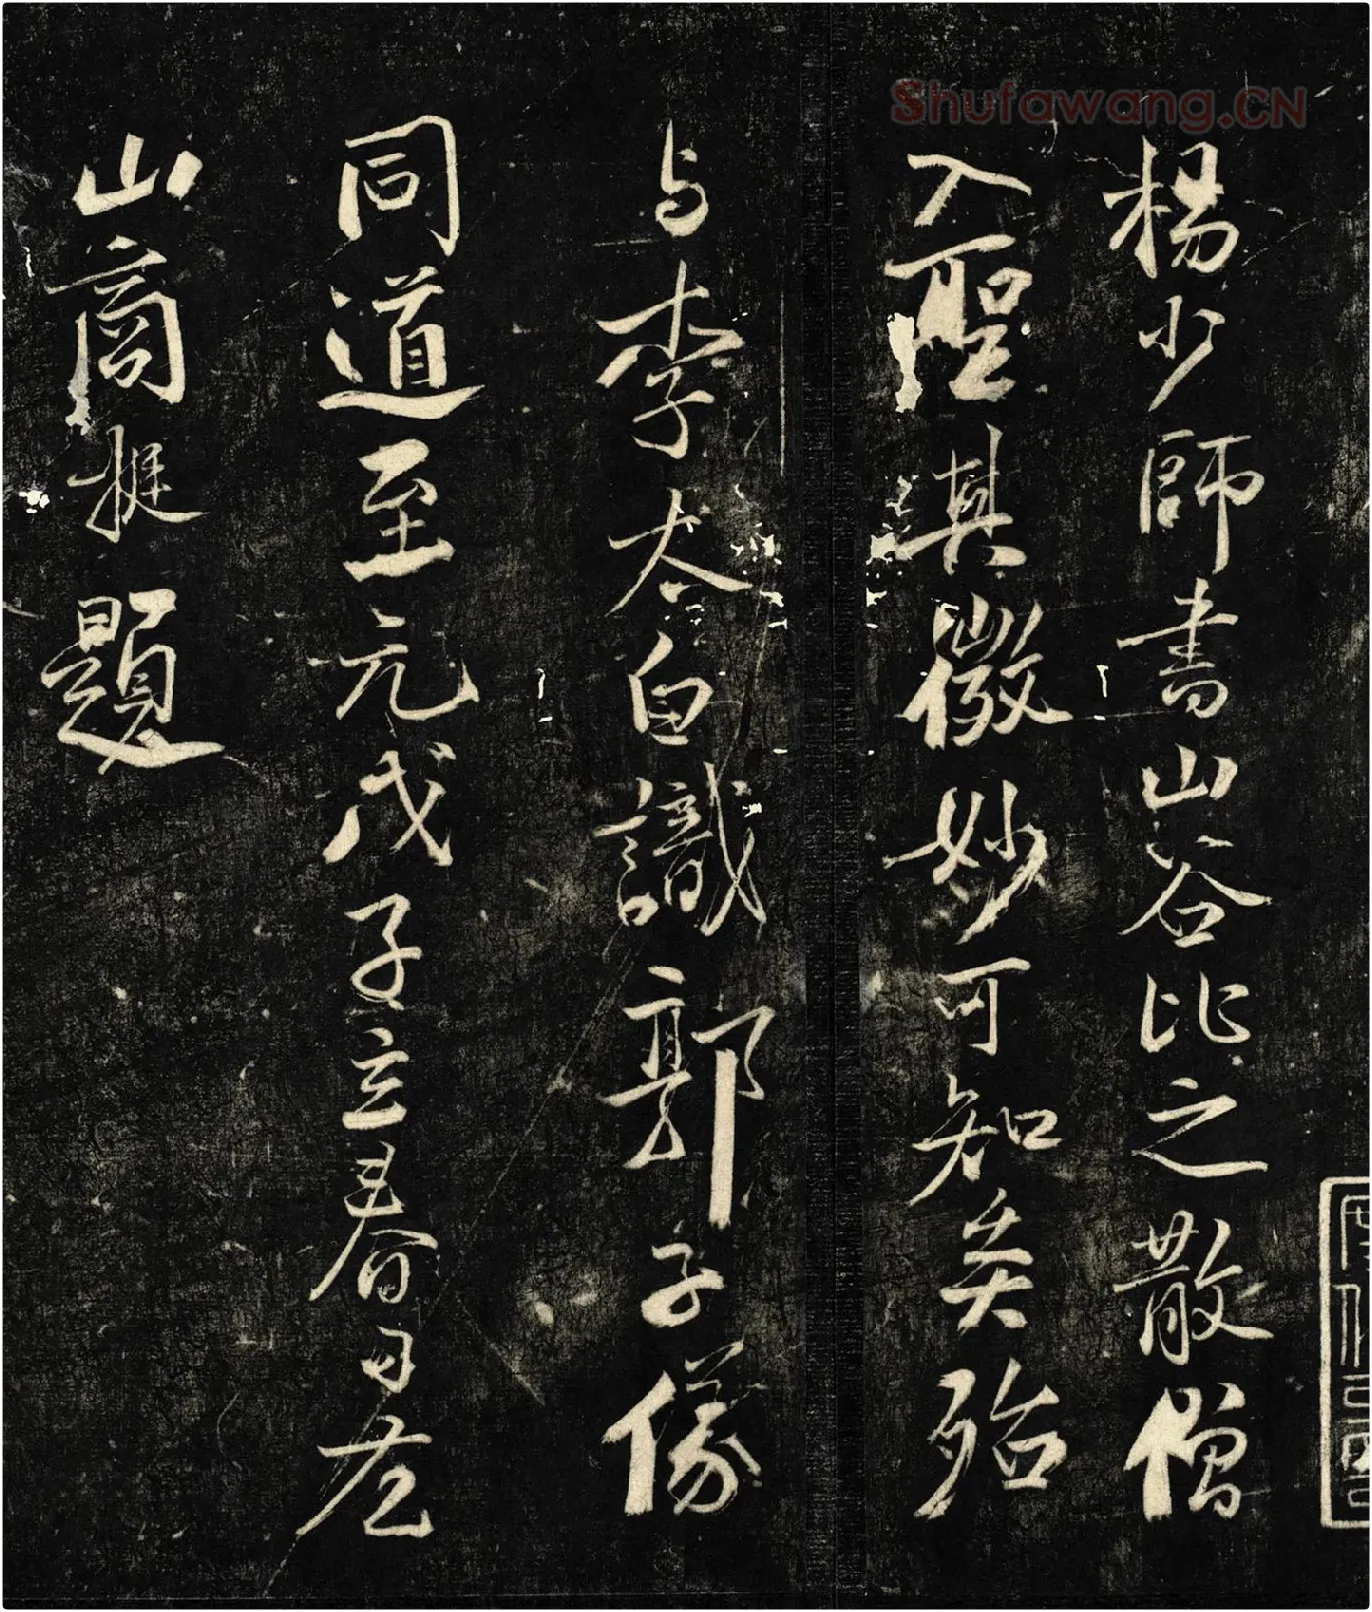 Shufawang.CN
楊少師書山谷比之散僧
入聖其微妙可知矣殆
与李太白識郭子儀
同道至元戊子立春日左
山商挺題